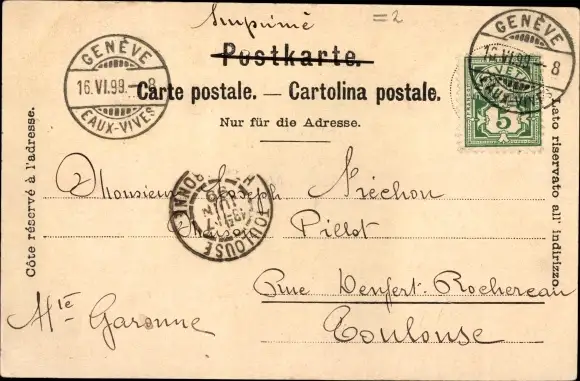 Imprimé
=2
GENÈVE
16.VI.99.–8
EAUX-VIVES
GENÈVE
16.VI.99.–8
EAUX-VIVES
Postkarte.
Carte postale. — Cartolina postale.
Nur für die Adresse.
Côte réservé à l'adresse.
Lato riservato all' indirizzo.
5
Monsieur Joseph Fréchon
Pillot
TOULOUSE
Rue Denfert-Rochereau
Hte Garonne
Toulouse